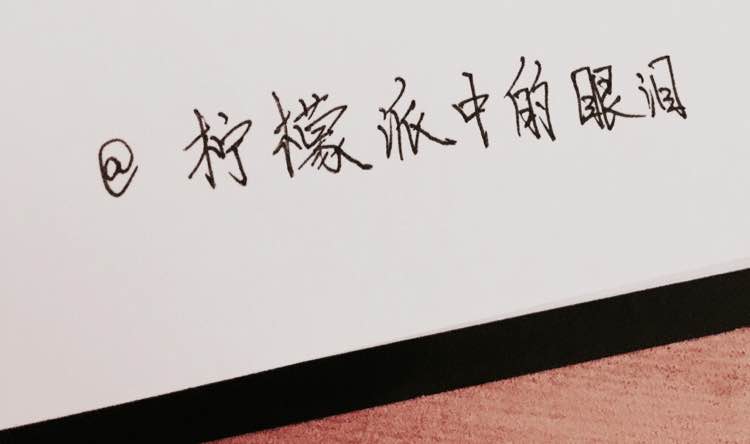 @ 柠檬派中的眼泪